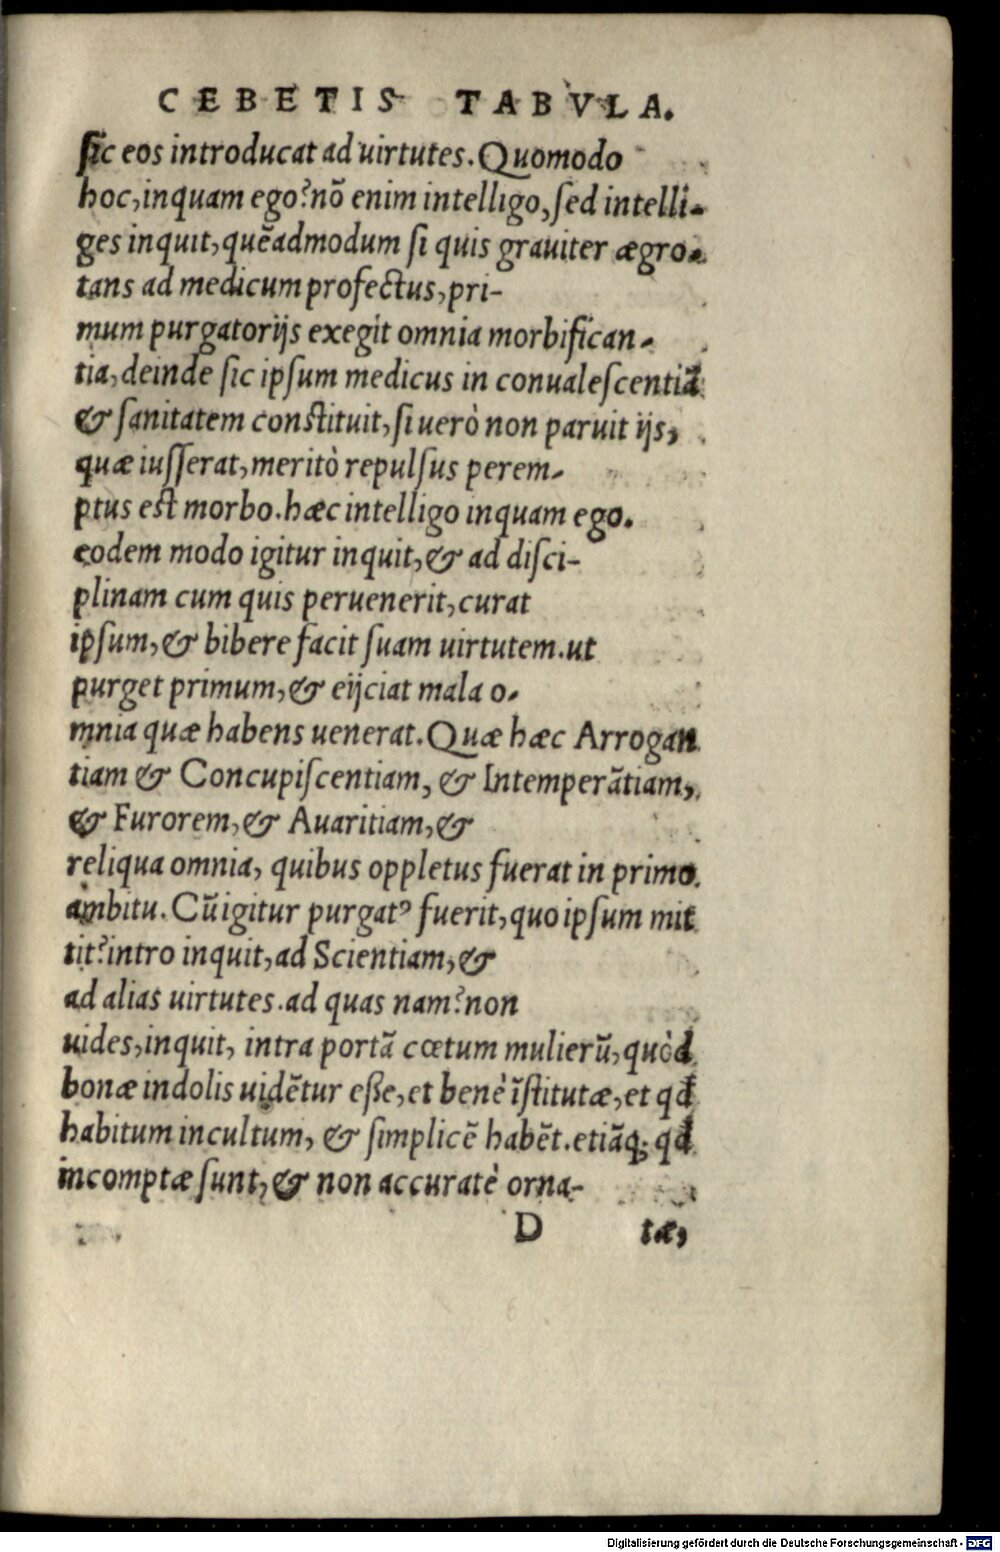 CEBETIS TABVLA.
sic eos introducat ad uirtutes. Quomodo
hoc, inquam ego? nõ enim intelligo, sed intelli-
ges inquit, quẽadmodum si quis grauiter ægro-
tans ad medicum profectus, pri-
mum purgatorijs exegit omnia morbifican-
tia, deinde sic ipsum medicus in conualescentiã
& sanitatem constituit, si uerò non paruit ijs,
quæ iusserat, meritò repulsus perem-
ptus est morbo. hæc intelligo inquam ego.
eodem modo igitur inquit, & ad disci-
plinam cum quis peruenerit, curat
ipsum, & bibere facit suam uirtutem. ut
purget primum, & eijciat mala o-
mnia quæ habens uenerat. Quæ hæc Arrogan
tiam & Concupiscentiam, & Intemperãtiam,
& Furorem, & Auaritiam, &
reliqua omnia, quibus oppletus fuerat in primo
ambitu. Cũ igitur purgatꝰ fuerit, quo ipsum mit
tit? intro inquit, ad Scientiam, &
ad alias uirtutes. ad quas nam? non
uides, inquit, intra portã cœtum mulierũ, quòd
bonæ indolis uidẽtur eße, et benè ĩstitutæ, et qđ
habitum incultum, & simplicẽ habẽt. etiãq; qđ
incomptæ sunt, & non accuratè orna-
D tæ,
Digitalisierung gefördert durch die Deutsche Forschungsgemeinschaft - DFG